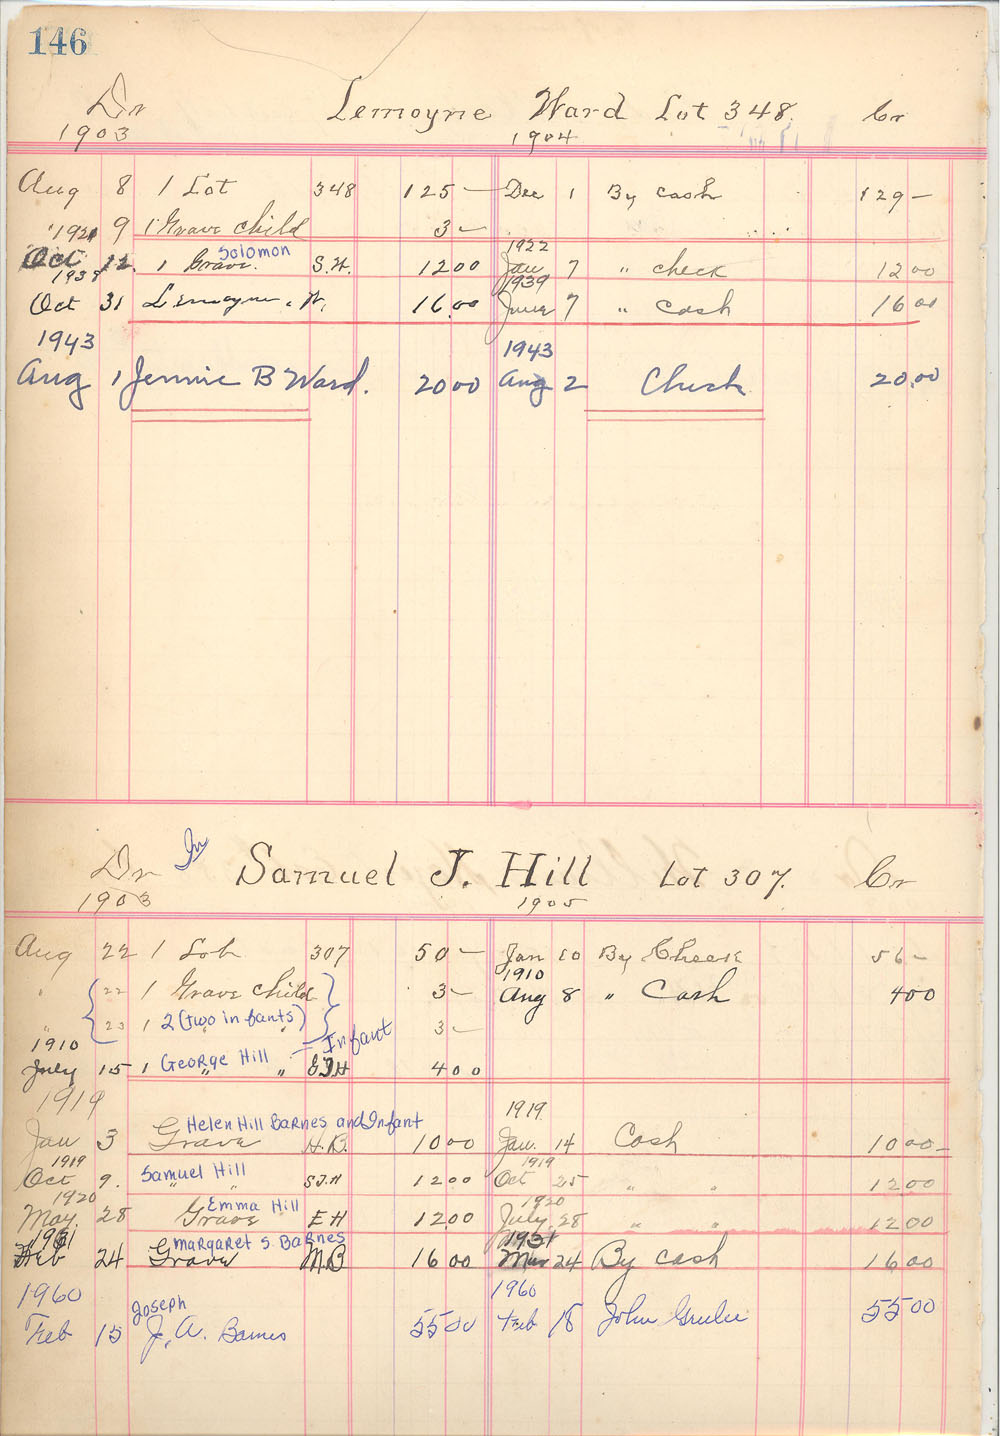 146
Dr Lemoyne Ward Lot 348. Cr
1903 1904
Aug 8 1 Lot 348 125 — Dec 1 By cash 129 —
" 9 1 Grave child 3 —
1921 1922
Oct 12. 1 Grave. Solomon S.W. 12 00 Jan 7 " check 12 00
1938 1939
Oct 31 Lemoyne. W. 16.00 June 7 " cash 16 00
1943 1943
Aug 1 Jennie B Ward. 20 00 Aug 2 Check 20.00
Dr Jr Samuel J. Hill Lot 307. Cr
1903 1905
Aug 22 1 Lot 307 50 — Jan 10 By Check 56 —
1910
" 22 1 Grave child 3 — Aug 8 " Cash 4 00
" 23 1 2 (two infants) " 3 —
1910 Infant
July 15 1 George Hill " " E.J.H 4 00
1919 1919
Helen Hill Barnes and Infant
Jan 3 Grave H.B. 10 00 Jan. 14 Cash 10 00 —
1919 1919
Oct 9. Samuel Hill " " S.J.H 12 00 Oct 25 " " 12 00
1920 Emma Hill 1920
May. 28 Grave E H 12 00 July. 28 " " 12 00
1931 Margaret S. Barnes 1931
Feb 24 Grave M.B 16 00 Mar 24 By cash 16 00
1960 Joseph 1960
Feb 15 J. A. Barnes 55 00 Feb 18 John 55 00